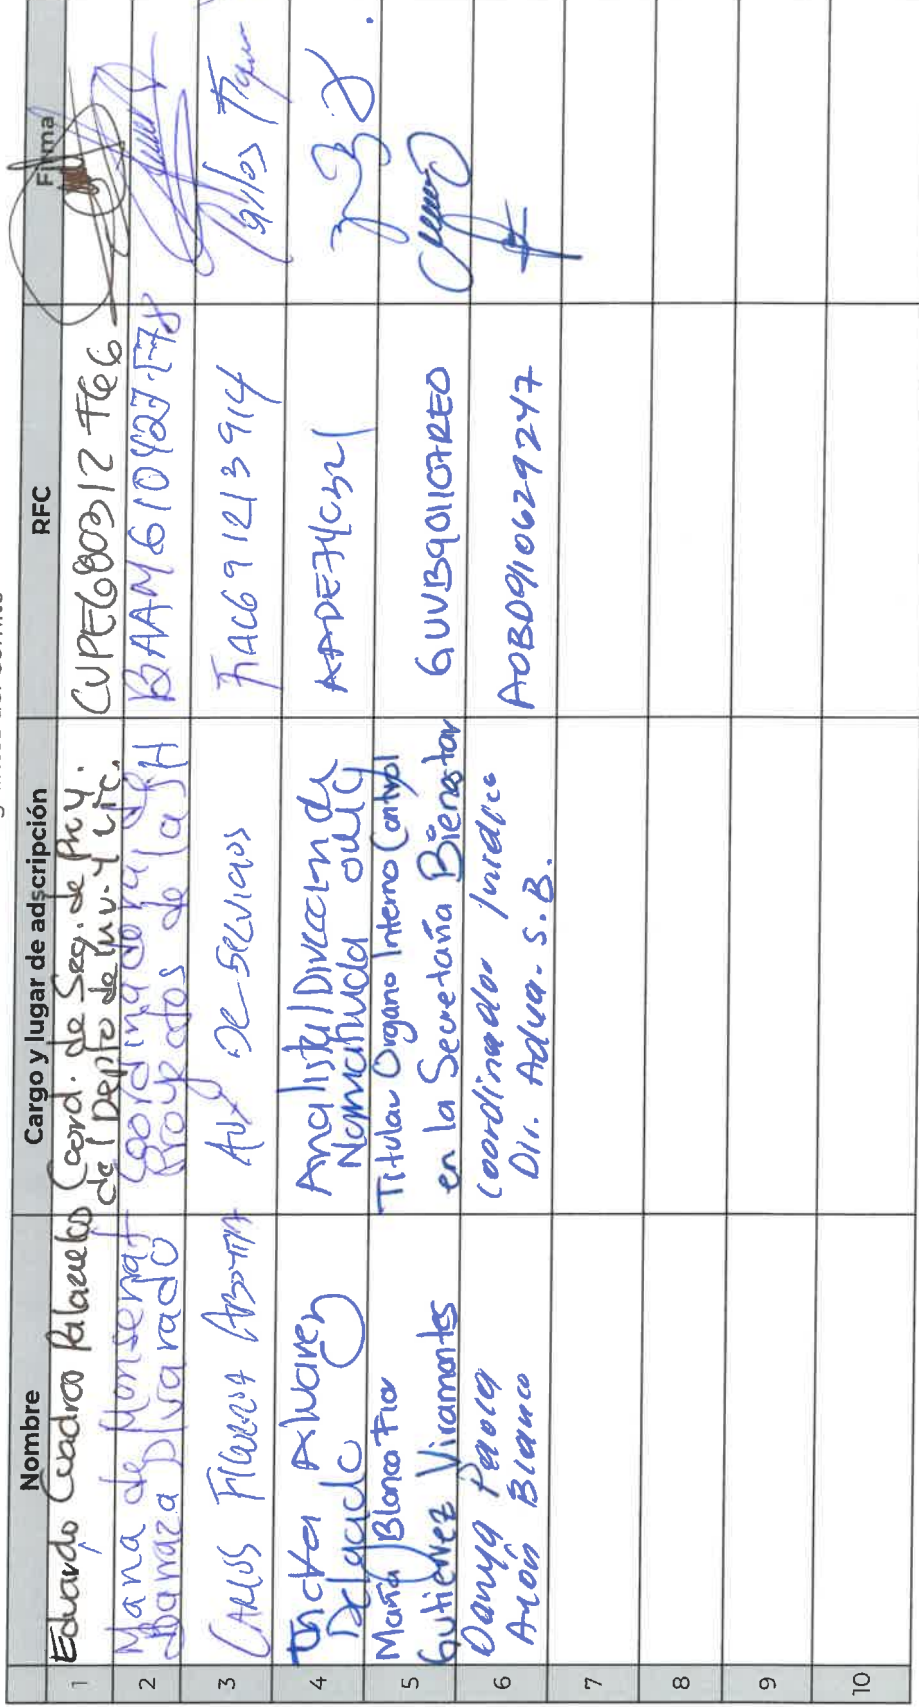 Nombre
Cargo y lugar de adscripción
RFC
Firma
1
Eduardo Cuadros Palazuelos
Coord. de Seg. de Proy.
del Depto de Inv. y Lic.
CUPE680312
2
María de Monserrat
Barraza Alvarado
Coordinadora de
Proyectos de la SH
BAAM610427
3
Carlos Figueroa
Aux De Servicios
FAC691213914
Carlos Figueroa
4
Delgado Alvarez
Analista/Dirección de
Normatividad
5
María Blanca Flor
Gutiérrez Viramontes
Titular Organo Interno Control
en la Secretaría Bienestar
GUVB901107REO
6
Danya Paola
Arón Blanco
Coordinador Jurídico
Dir. Adva. S.B.
AOBD910629247
7
8
9
10